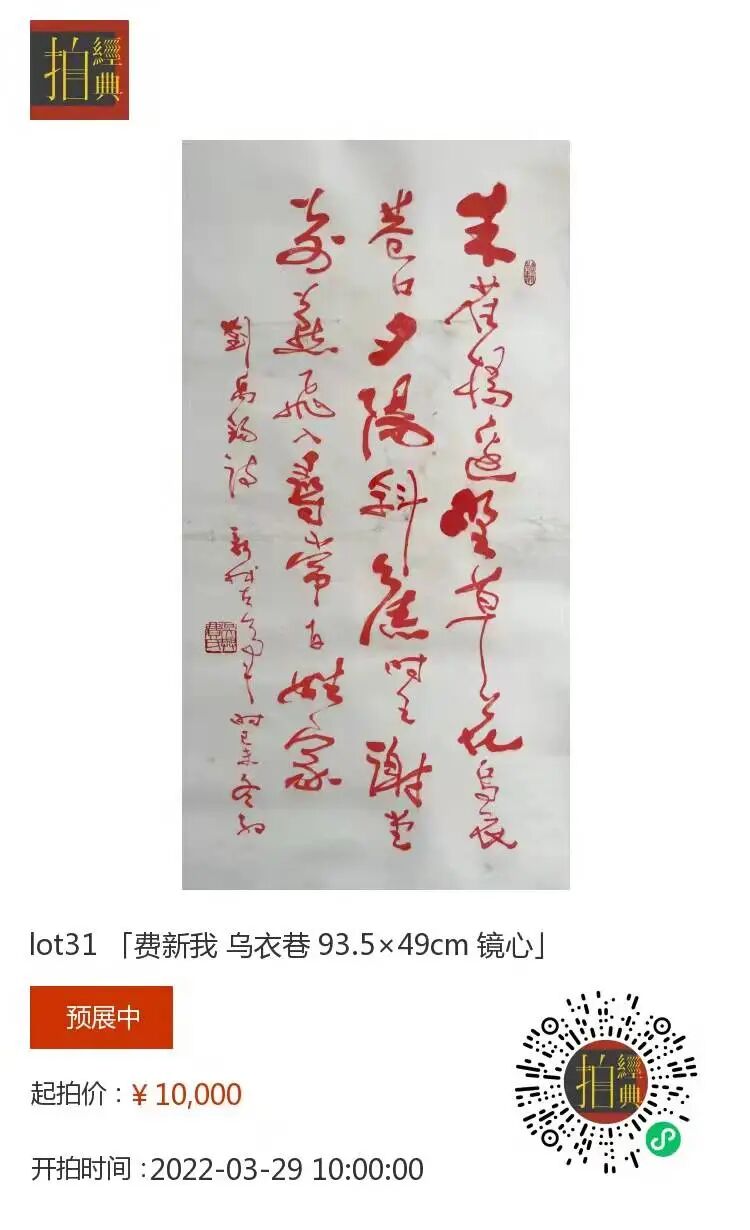 拍經典
朱雀橋邊野草花烏衣
巷口夕陽斜舊时王謝堂
前燕飛入尋常百姓家
劉禹錫詩 新我左筆 时己未冬初
lot31 「费新我 乌衣巷 93.5×49cm 镜心」
预展中
起拍价：¥ 10,000
开拍时间：2022-03-29 10:00:00
拍經典